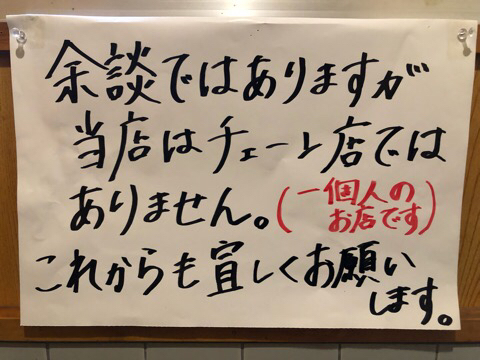 余談ではありますが
当店はチェーン店では
ありません。(一個人の
お店です)
これからも宜しくお願い
します。